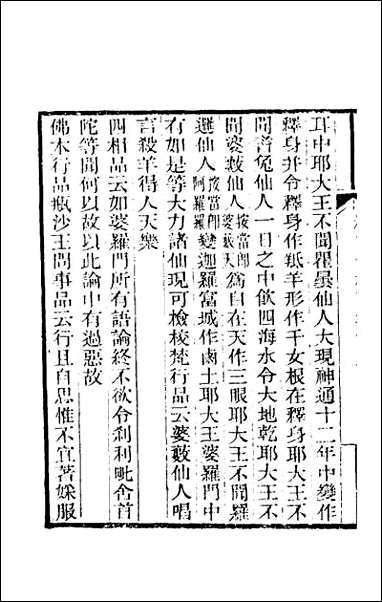 耳中耶大王不聞瞿曇仙人大現神通十二年中變作
釋身并令釋身作羝羊形作千女根在釋身耶大王不
聞耆兔仙人一日之中飲四海水令大地乾耶大王不
聞婆藪仙人按當即婆藪天爲自在天作三眼耶大王不聞羅
邏仙人按當即阿羅邏變迦羅富城作鹵土耶大王婆羅門中
有如是等大力諸仙現可檢校梵行品云婆藪仙人唱
言殺羊得人天樂
四相品云如婆羅門所有語論終不欲令刹利毗舍首
陀等聞何以故以此論中有過惡故
佛本行品瓶沙王問事品云行且自思惟不宜著婇服